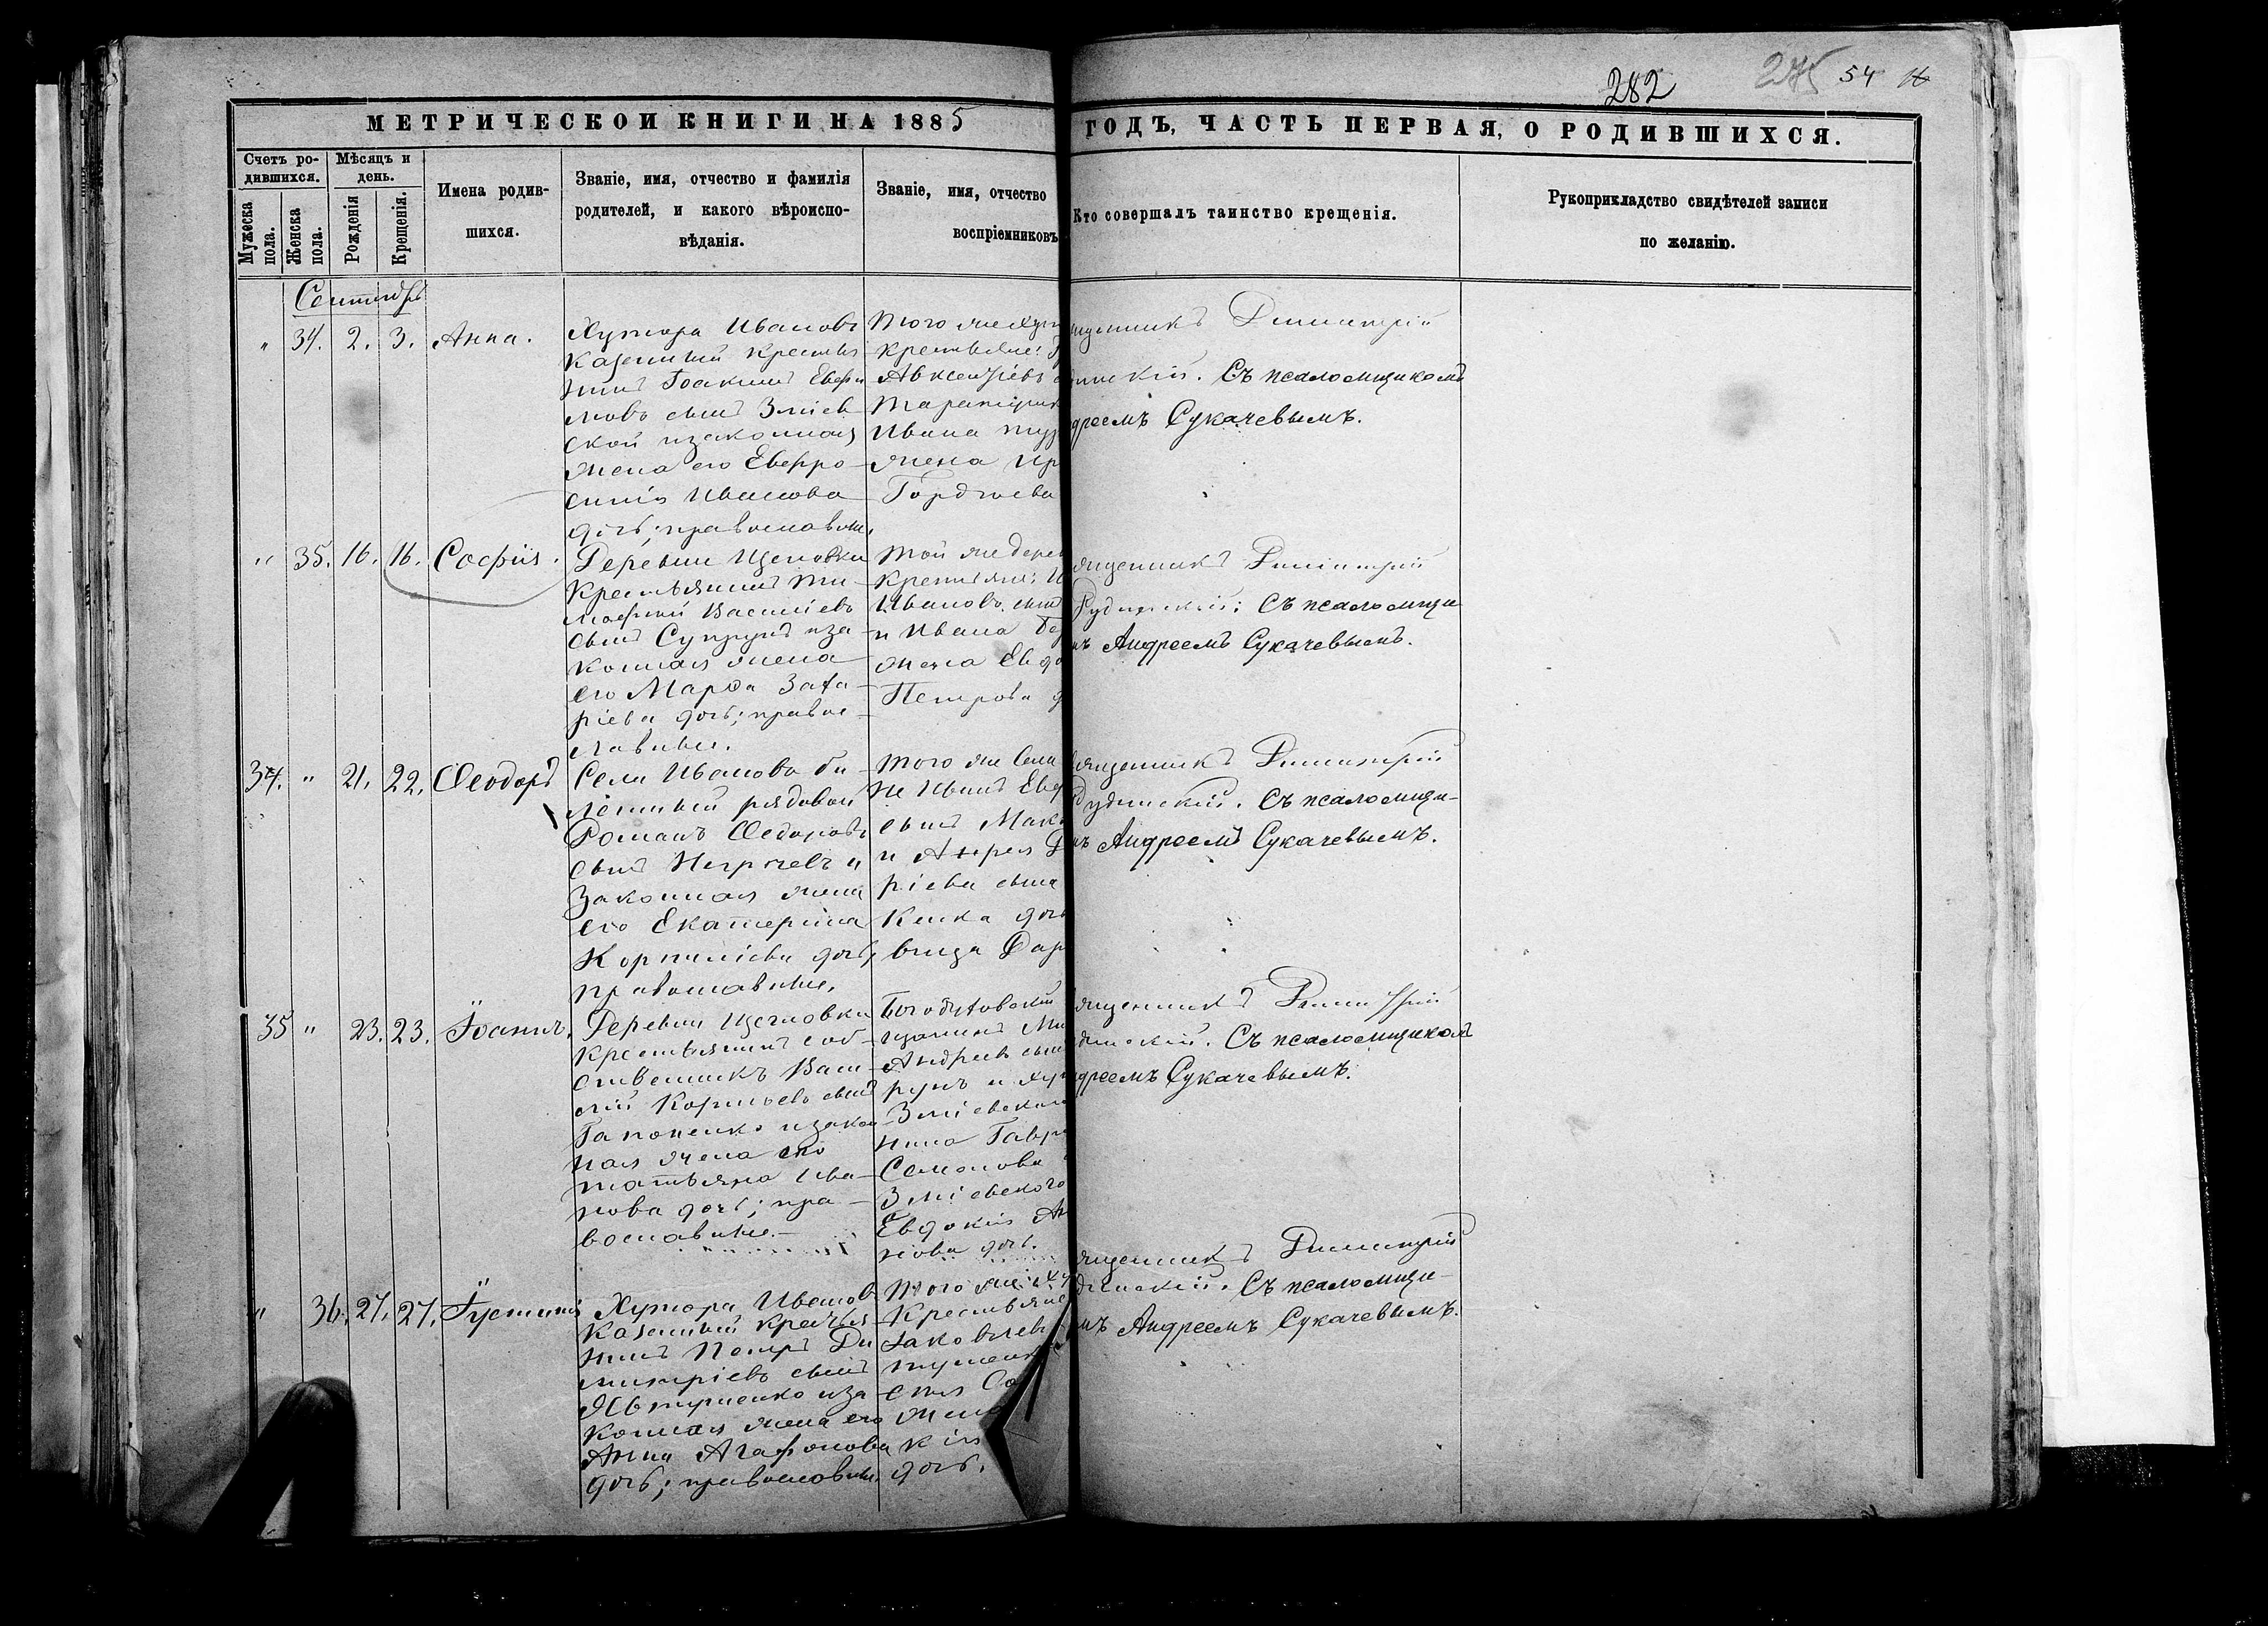 282 275 54
МЕТРИЧЕСКОЙ КНИГИ НА 1885 ГОДЪ, ЧАСТЬ ПЕРВАЯ, О РОДИВШИХСЯ.
Счетъ ро-
дившихся.
Мужеска
пола.
Женска
пола.
Мѣсяцъ и
день.
Рожденія
Крещенія.
Имена родив-
шихся.
Званіе, имя, отчество и фамилія
родителей, и какого вѣроиспо-
вѣданія.
Званіе, имя, отчество
воспріемниковъ
Кто совершалъ таинство крещенія.
Рукоприкладство свидѣтелей записи
по желанію.
Сентябрь
" 34. 2. 3. Анна.
Хутора Иванов
казенный крестья
нинъ Іоакимъ Евфи
мовъ сынъ Зміев
ской и законная
жена его Евфро-
синія Иванова
дочь; православн.
Того же
крестьяне:
Авксентіевъ
Ивана
жена Ир
Гордіева
Димитрій
Съ псаломщикомъ
дреемъ Сукачевымъ.
" 35. 16. 16. Софія.
Деревни Щегловки
крестьянинъ Ти-
мофей Василіевъ
сынъ Супрунъ и за-
конная жена
его Марѳа Заха-
ріева дочь; правос-
лавные.
Той же дерев
крестьяне:
Ивановъ сынъ
и Ивана
жена Евдо
Петрова д
ященникъ Димитрій
Рудинскій: Съ псаломщи-
мъ Андреемъ Сукачевымъ.
34. " 21. 22. Ѳеодоръ
Села Иванова би-
летный рядовой
Романъ Ѳедоровъ
сынъ и
законная жена
его Екатерина
Корниліева дочь,
православные.
Того же села
не Иванъ
сынъ Мак
и Андрея Д
ріева сына
дочь
вица Дар
ященникъ Димитрій
Рудинскій. Съ псаломщи-
мъ Андреемъ Сукачевымъ.
35 " 23. 23. Іоаннъ.
Деревни Щегловки
крестьянинъ соб-
ственникъ Васи-
лій Корнѣевъ сынъ
Гапоненко и закон
ная жена его
Татьяна Ива-
нова дочь; пра-
вославные.
Богодуховскій
щанинъ Ми
Андреевъ сынъ
рунъ и
Зміевского
нина Гавр
Семенова
Зміевского
Евдокія
нова дочь.
ященникъ Димитрій
динскій. Съ псаломщикомъ
дреемъ Сукачевымъ.
" 36. 27. 27. Іустинія
Хутора Иванов
казенный крестья-
нинъ Петръ Ди
митріевъ сынъ
и за-
конная жена его
Анна Агафонова
дочь; православн.
Того же ху
крестьяне
Яковлевъ
жена
кія
дочь.
ященникъ Димитрій
динскій. Съ псаломщи-
мъ Андреемъ Сукачевымъ.